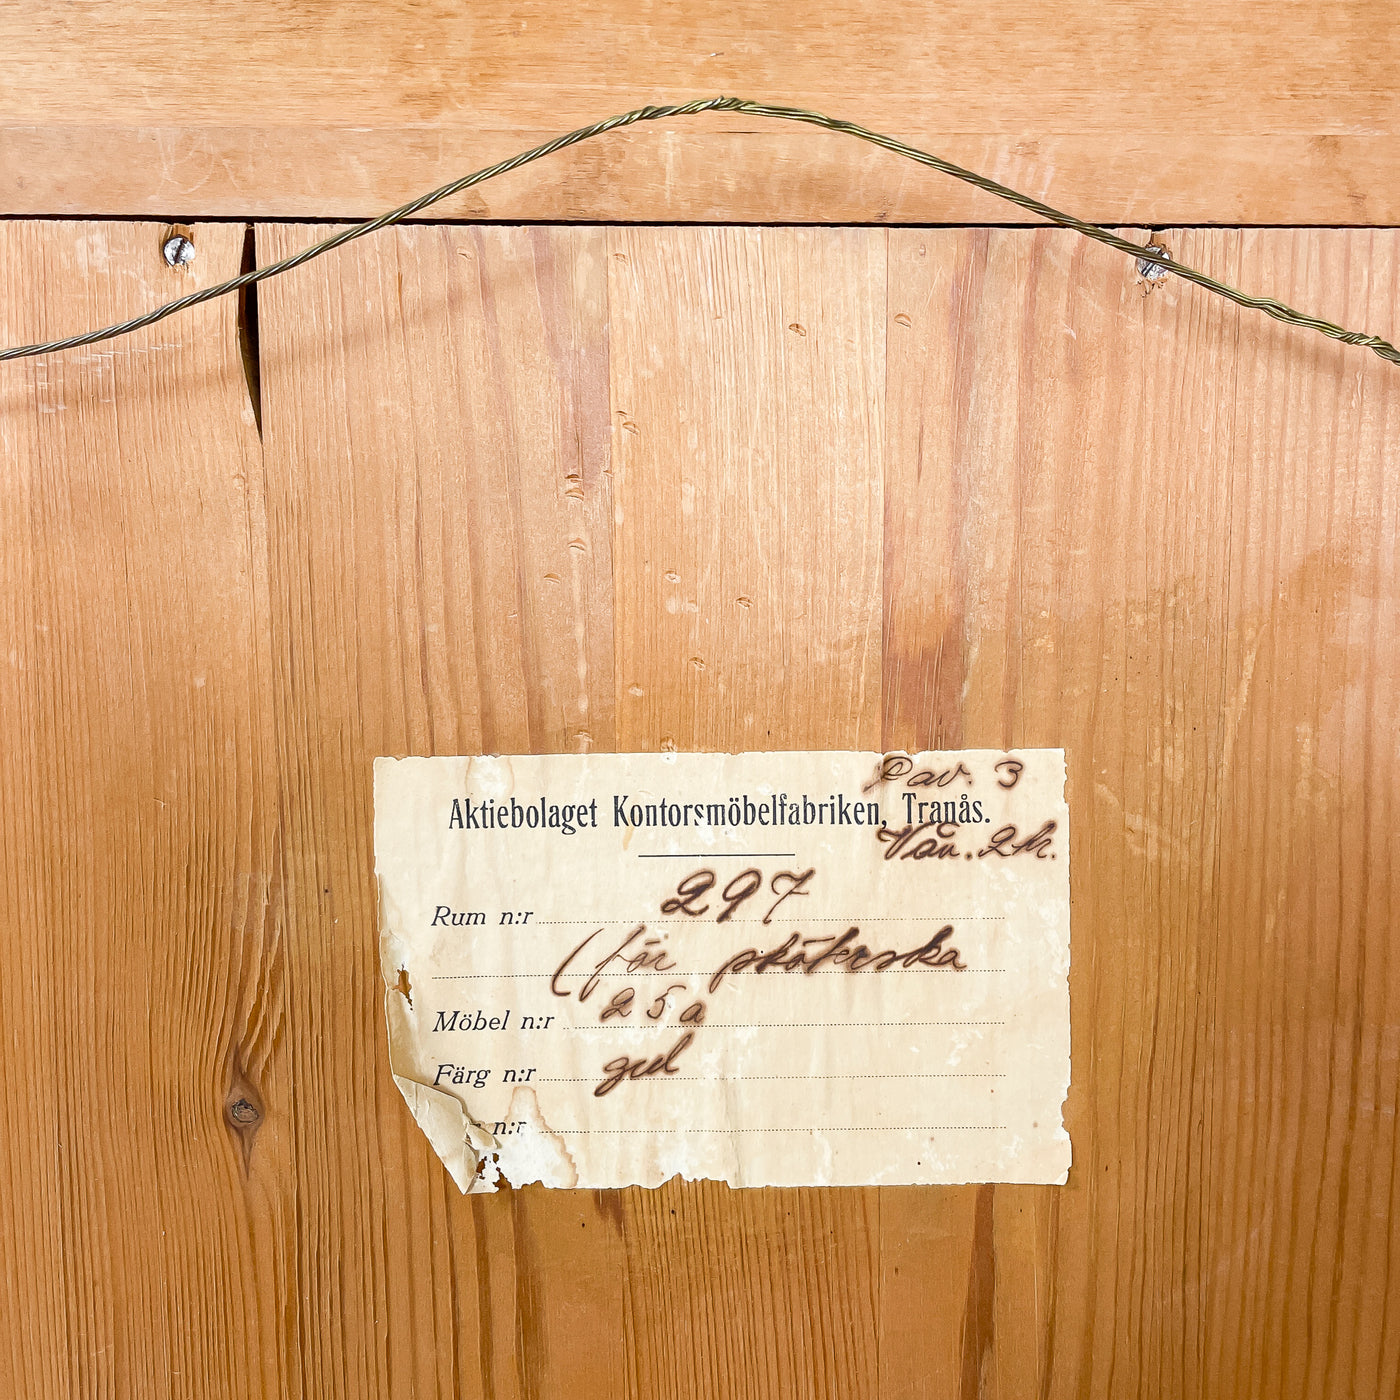 Pav. 3
Aktiebolaget Kontorsmöbelfabriken, Tranås.
Vån. 2 tr.
Rum n:r 297
(för sköterska
Möbel n:r 25a
Färg n:r gul
n:r